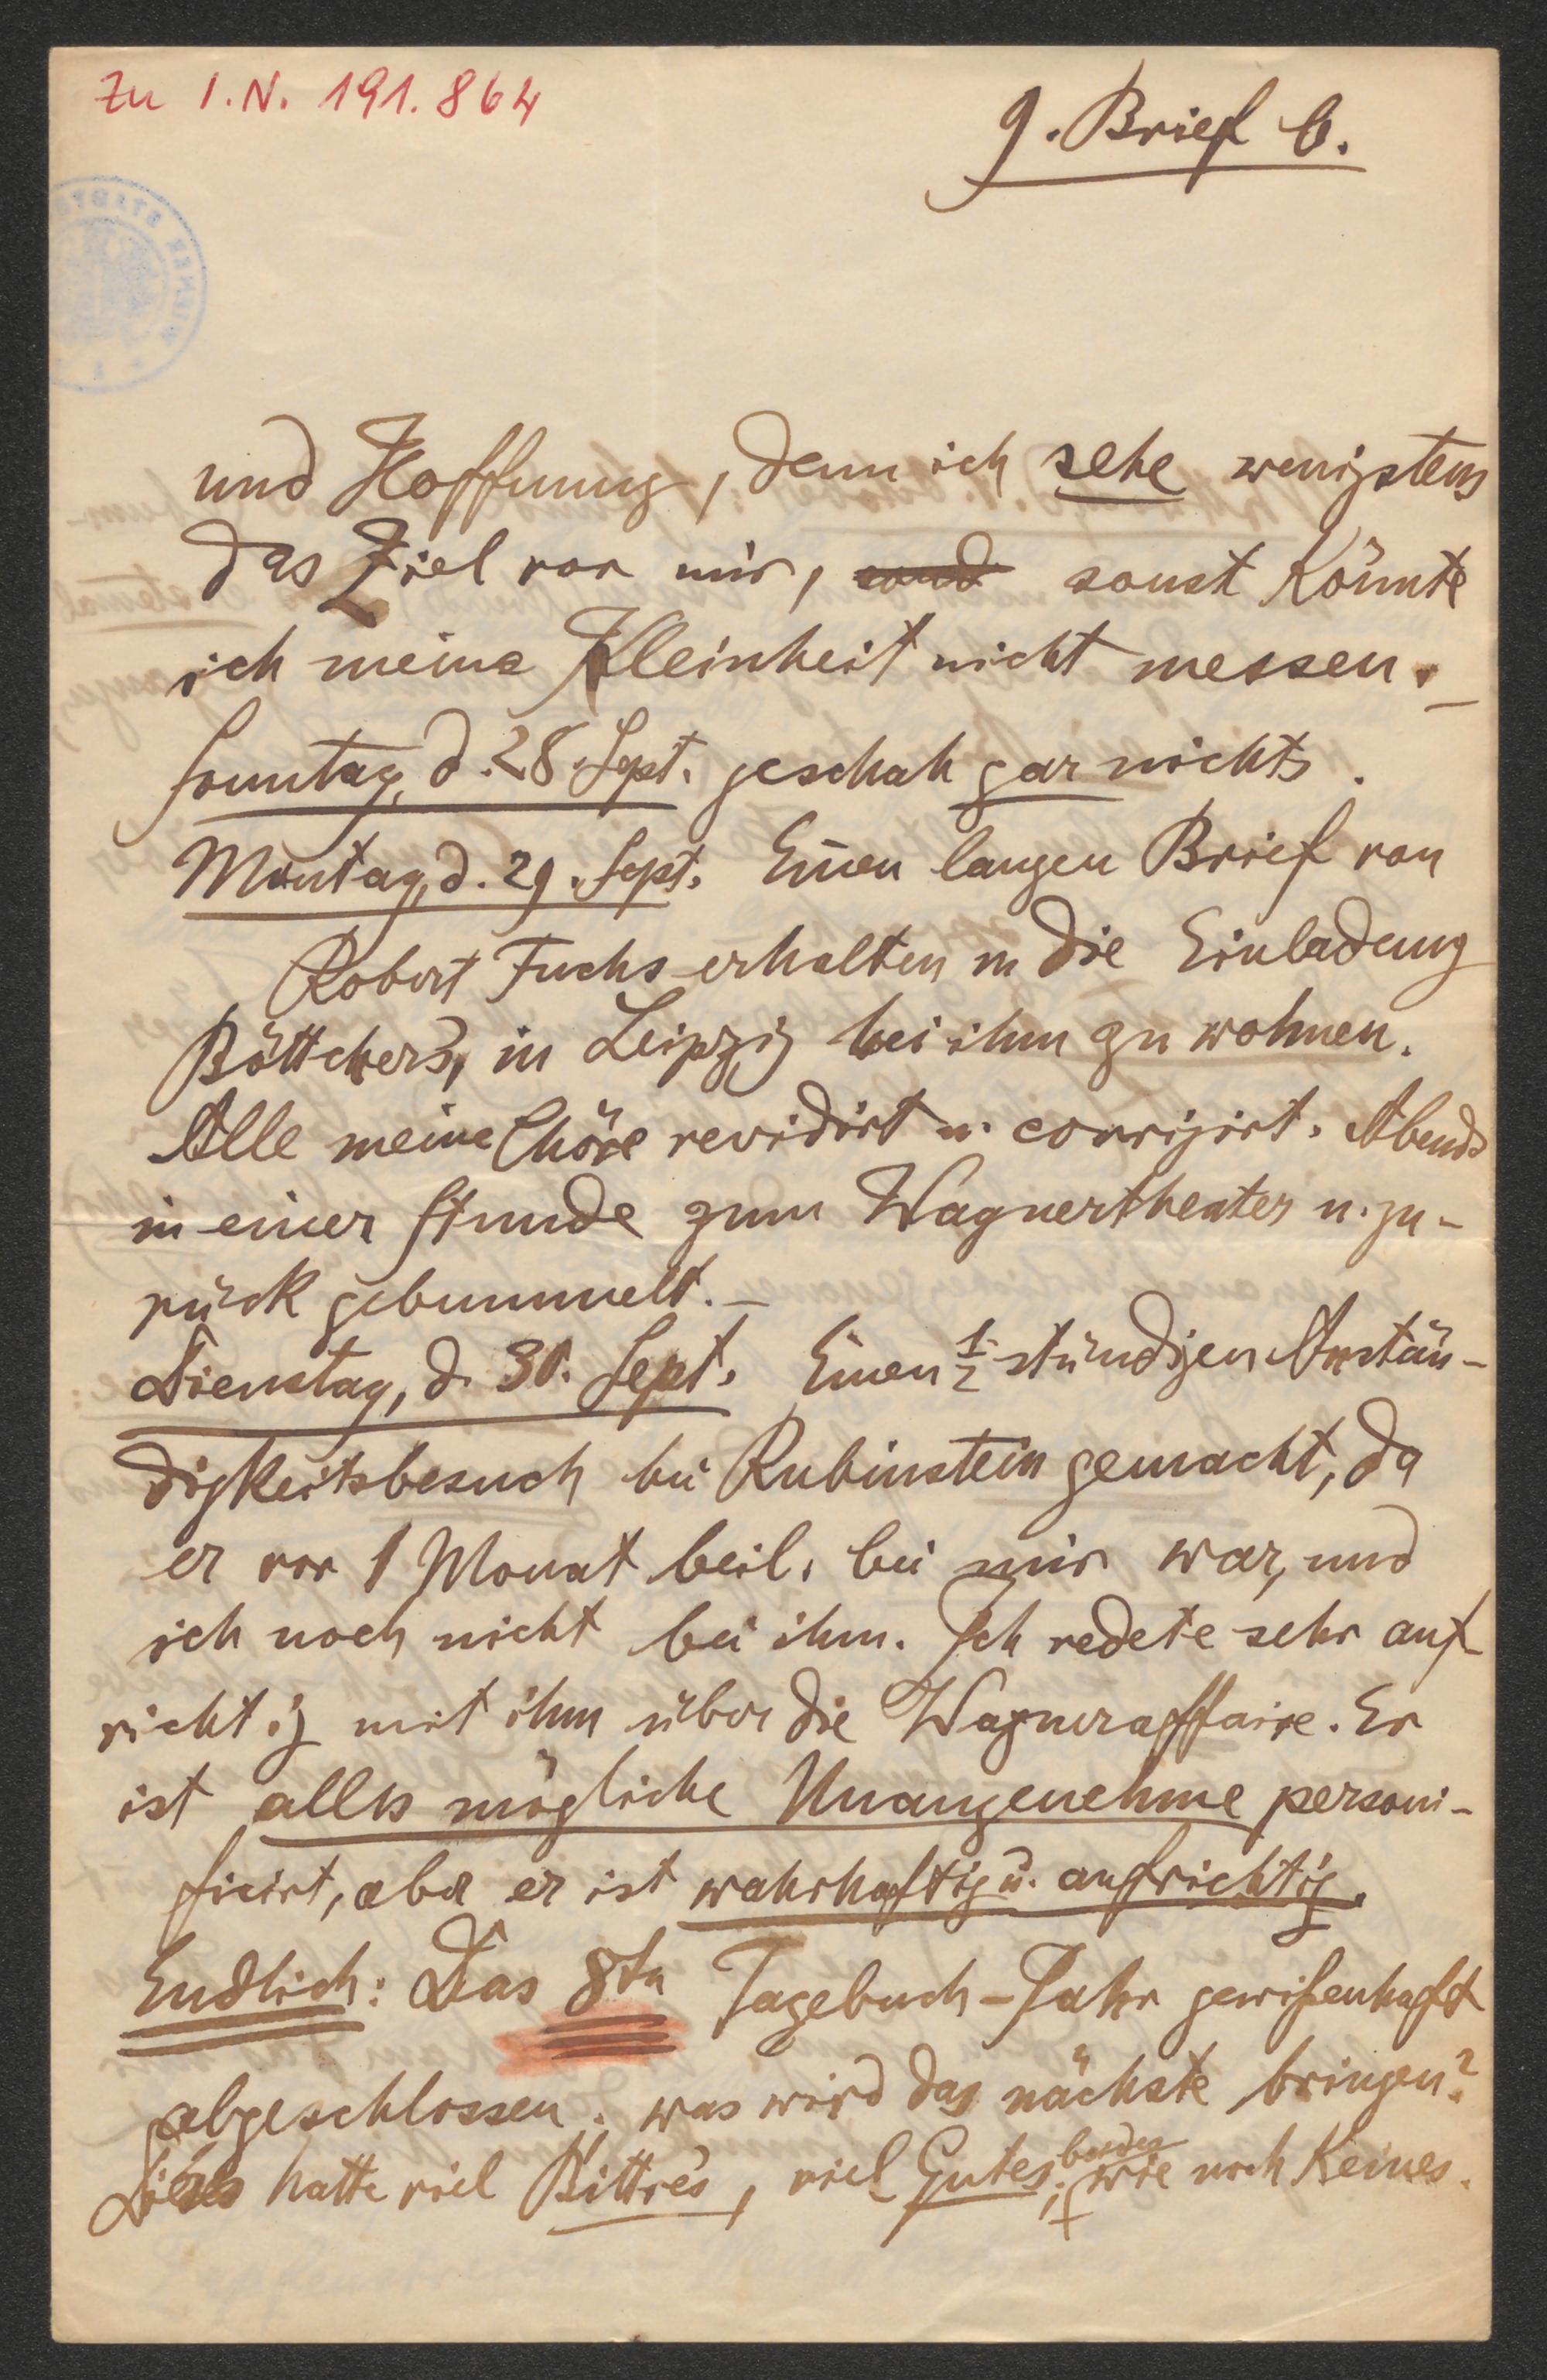 Zu I.N. 191.864
9. Brief b.
und Hoffnung, denn ich sehe wenigstens
das Ziel vor mir, sonst könnte
ich meine Kleinheit nicht messen. –
Sonntag, d. 28. Sept. geschah gar nichts.
Montag, d. 29. Sept. Einen langen Brief von
Robert Fuchs erhalten u die Einladung
Böttchers, in Leipzig bei ihm zu wohnen.
Alle meine Chöre revidirt u. corrigirt. Abends
in einer Stunde zum Wagnertheater u. zu-
rück gebummelt. –
Dienstag, d. 30. Sept. Einen ½ stündigen Anstän-
digkeitsbesuch bei Rubinstein gemacht, da
er vor 1 Monat beil. bei mir war, und
ich noch nicht bei ihm. Ich redete sehr auf
richtig mit ihm über die Wagneraffaire. Er
ist alles mögliche Unangenehme personi-
ficirt, aber er ist wahrhaftig u. aufrichtig.
Endlich: Das 8te Tagebuch-Jahr gewißenhaft
abgeschlossen; was wird das nächste bringen?
Dieses hatte viel Bittres, viel Gutes; beides wie noch Keines.